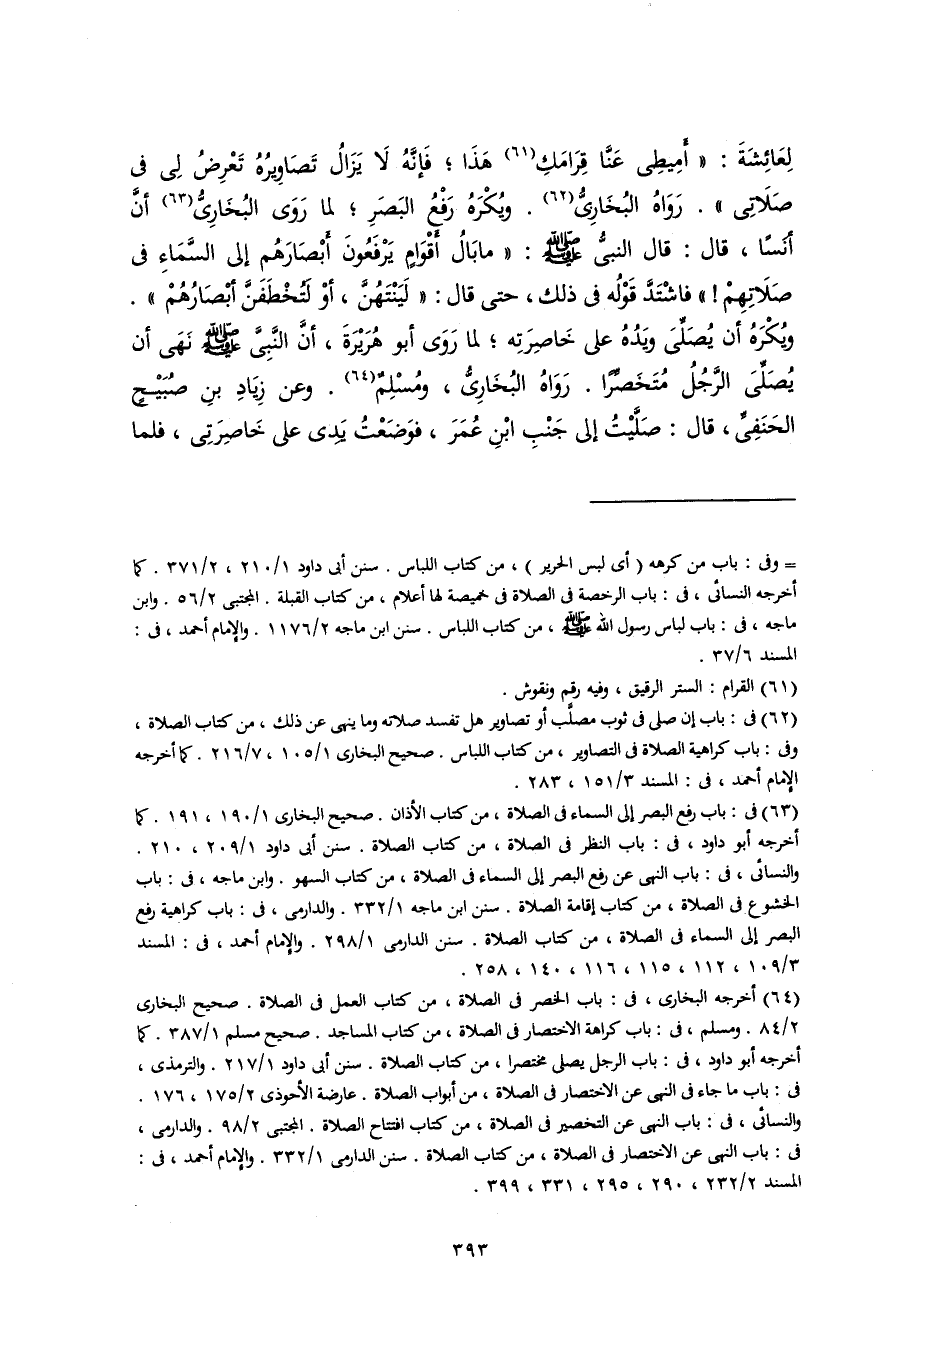 لِعَائِشَةَ : « أَمِيطِى عَنَّا قِرَامَكِ(٦١) هَذَا ؛ فَإِنَّهُ لَا يَزَالُ تَصَاوِيرُهُ تَعْرِضُ لِى فى
صَلَاتِى » . رَوَاهُ البُخَارِىُّ(٦٢) . ويُكْرَهُ رَفْعُ البَصَرِ ؛ لما رَوَى البُخَارِىُّ(٦٣) أنَّ
أنَسًا ، قال : قال النبىُّ ﷺ : « مابَالُ أَقْوَامٍ يَرْفَعُونَ أَبْصَارَهُم إلى السَّمَاءِ فى
صَلَاتِهِمْ ! » فاشْتَدَّ قَوْلُه فى ذلك ، حتى قال : « لَيَنْتَهُنَّ ، أوْ لَتُخْطَفَنَّ أبْصَارُهُمْ » .
ويُكْرَهُ أن يُصَلِّىَ ويَدُهُ على خَاصِرَتِه ؛ لما رَوَى أبو هُرَيْرَةَ ، أنَّ النَّبِىَّ ﷺ نَهَى أن
يُصَلِّىَ الرَّجُلُ مُتَخَصِّرًا . رَوَاهُ البُخَارِىُّ ، ومُسْلِمٌ(٦٤) . وعن زِيَادِ بنِ صُبَيْحٍ
الحَنَفِىِّ ، قال : صَلَّيْتُ إلى جَنْبِ ابْنِ عُمَرَ ، فوَضَعْتُ يَدِى على خَاصِرَتِى ، فلما
= وفى : باب من كرهه ( أى لبس الحرير ) ، من كتاب اللباس . سنن أبى داود ٢١٠/١ ، ٣٧١/٢ . كما
أخرجه النسائى ، فى : باب الرخصة فى الصلاة فى خميصة لها أعلام ، من كتاب القبلة . المجتبى ٥٦/٢ . وابن
ماجه ، فى : باب لباس رسول الله ﷺ ، من كتاب اللباس . سنن ابن ماجه ١١٧٦/٢ . والإمام أحمد ، فى :
المسند ٣٧/٦ .
(٦١) القرام : الستر الرقيق ، وفيه رقم ونقوش .
(٦٢) فى : باب إن صلى فى ثوب مصلَّب أو تصاوير هل تفسد صلاته وما ينهى عن ذلك ، من كتاب الصلاة ،
وفى : باب كراهية الصلاة فى التصاوير ، من كتاب اللباس . صحيح البخارى ١٠٥/١ ، ٢١٦/٧ . كما أخرجه
الإمام أحمد ، فى : المسند ١٥١/٣ ، ٢٨٣ .
(٦٣) فى : باب رفع البصر إلى السماء فى الصلاة ، من كتاب الأذان . صحيح البخارى ١٩٠/١ ، ١٩١ . كما
أخرجه أبو داود ، فى : باب النظر فى الصلاة ، من كتاب الصلاة . سنن أبى داود ٢٠٩/١ ، ٢١٠ .
والنسائى ، فى : باب النهى عن رفع البصر إلى السماء فى الصلاة ، من كتاب السهو . وابن ماجه ، فى : باب
الخشوع فى الصلاة ، من كتاب إقامة الصلاة . سنن ابن ماجه ٣٣٢/١ . والدارمى ، فى : باب كراهية رفع
البصر إلى السماء فى الصلاة ، من كتاب الصلاة . سنن الدارمى ٢٩٨/١ . والإمام أحمد ، فى : المسند
١٠٩/٣ ، ١١٢ ، ١١٥ ، ١١٦ ، ١٤٠ ، ٢٥٨ .
(٦٤) أخرجه البخارى ، فى : باب الخصر فى الصلاة ، من كتاب العمل فى الصلاة . صحيح البخارى
٨٤/٢ . ومسلم ، فى : باب كراهة الاختصار فى الصلاة ، من كتاب المساجد . صحيح مسلم ٣٨٧/١ . كما
أخرجه أبو داود ، فى : باب الرجل يصلى مختصرا ، من كتاب الصلاة . سنن أبى داود ٢١٧/١ . والترمذى ،
فى : باب ما جاء فى النهى عن الاختصار فى الصلاة ، من أبواب الصلاة . عارضة الأحوذى ١٧٥/٢ ، ١٧٦ .
والنسائى ، فى : باب النهى عن التخصير فى الصلاة ، من كتاب افتتاح الصلاة . المجتبى ٩٨/٢ . والدارمى ،
فى : باب النهى عن الاختصار فى الصلاة ، من كتاب الصلاة . سنن الدارمى ٣٣٢/١ . والإمام أحمد ، فى :
المسند ٢٣٢/٢ ، ٢٩٠ ، ٢٩٥ ، ٣٣١ ، ٣٩٩ .
٣٩٣